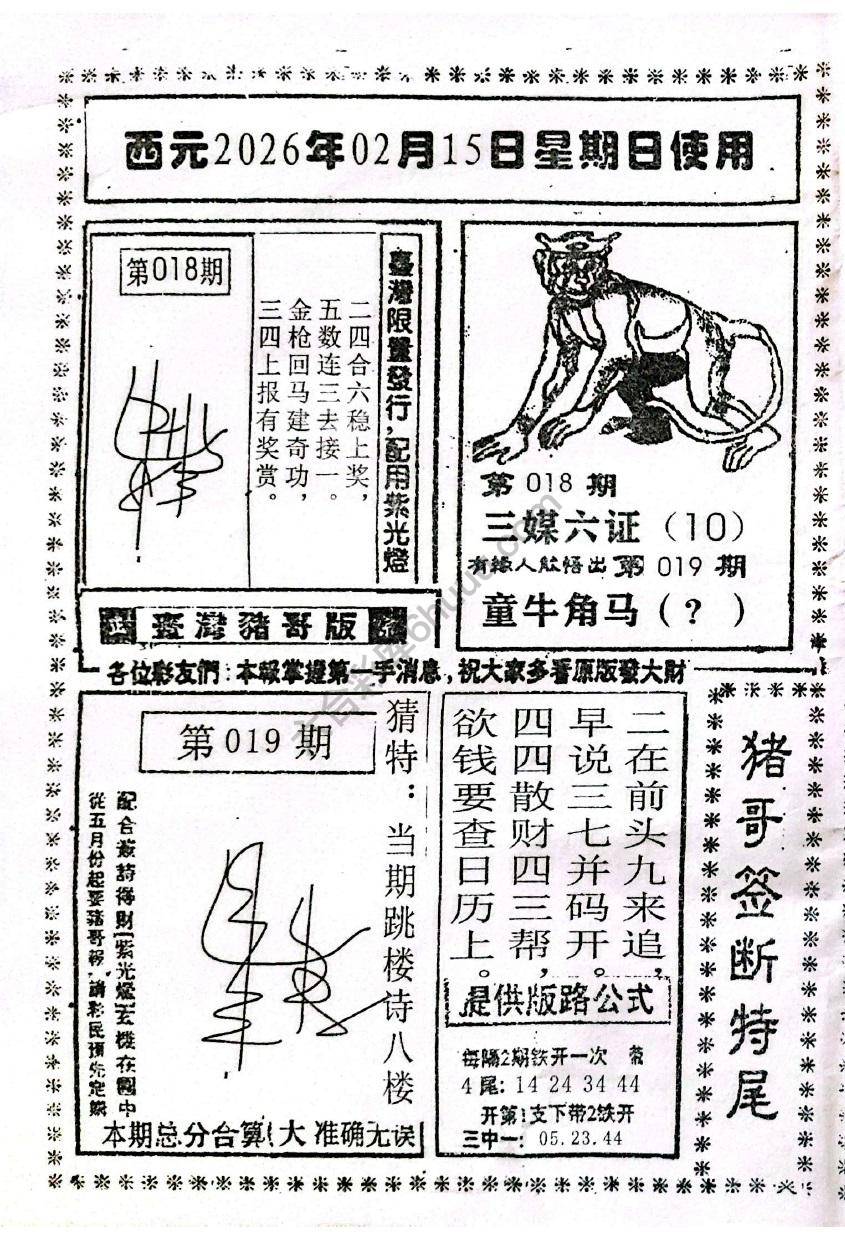 西元2026年02月15日星期日使用
第018期
臺灣限量發行,配用紫光燈
二四合六稳上奖,
五数连三去接一。
金枪回马建奇功,
三四上报有奖赏。
第018期
三媒六证(10)
有緣人能悟出第019期
童牛角马(?)
臺灣豬哥版
各位彩友們:本報掌握第一手消息,祝大家多看原版發大財
第019期
猜特:当期跳楼诗八楼
配合簽詩得財「紫光燈」玄機在圖中
從五月份起要豬哥報,請彩民預先定購
本期总分合算(大 准确无误
二在前头九来追,
早说三七并码开。
四四散财四三帮,
欲钱要查日历上。
提供版路公式
每隔2期铁开一次 带
4尾:14 24 34 44
开第1支下带2铁开
三中一:05.23.44
猪哥签断特尾
六合彩库6huuu.com